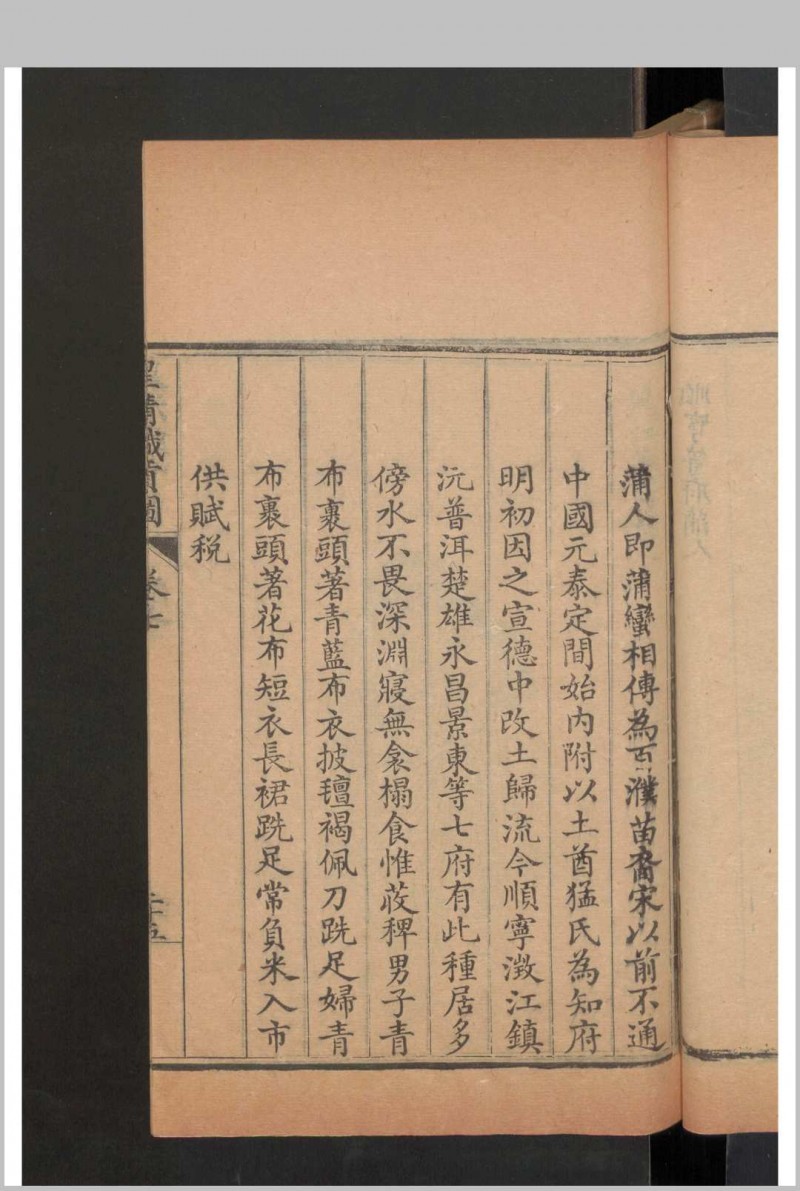 蒲人即蒲蠻相傳為百濮苗裔宋以前不通
中國元泰定間始內附以土酋猛氏為知府
明初因之宣德中改土歸流今順寧澂江鎮
沅普洱楚雄永昌景東等七府有此種居多
傍水不畏深淵寢無衾榻食惟荍稗男子青
布裹頭著青藍布衣披氊褐佩刀跣足婦青
布裹頭著花布短衣長裙跣足常負米入市
供賦稅
皇清職貢圖
卷七